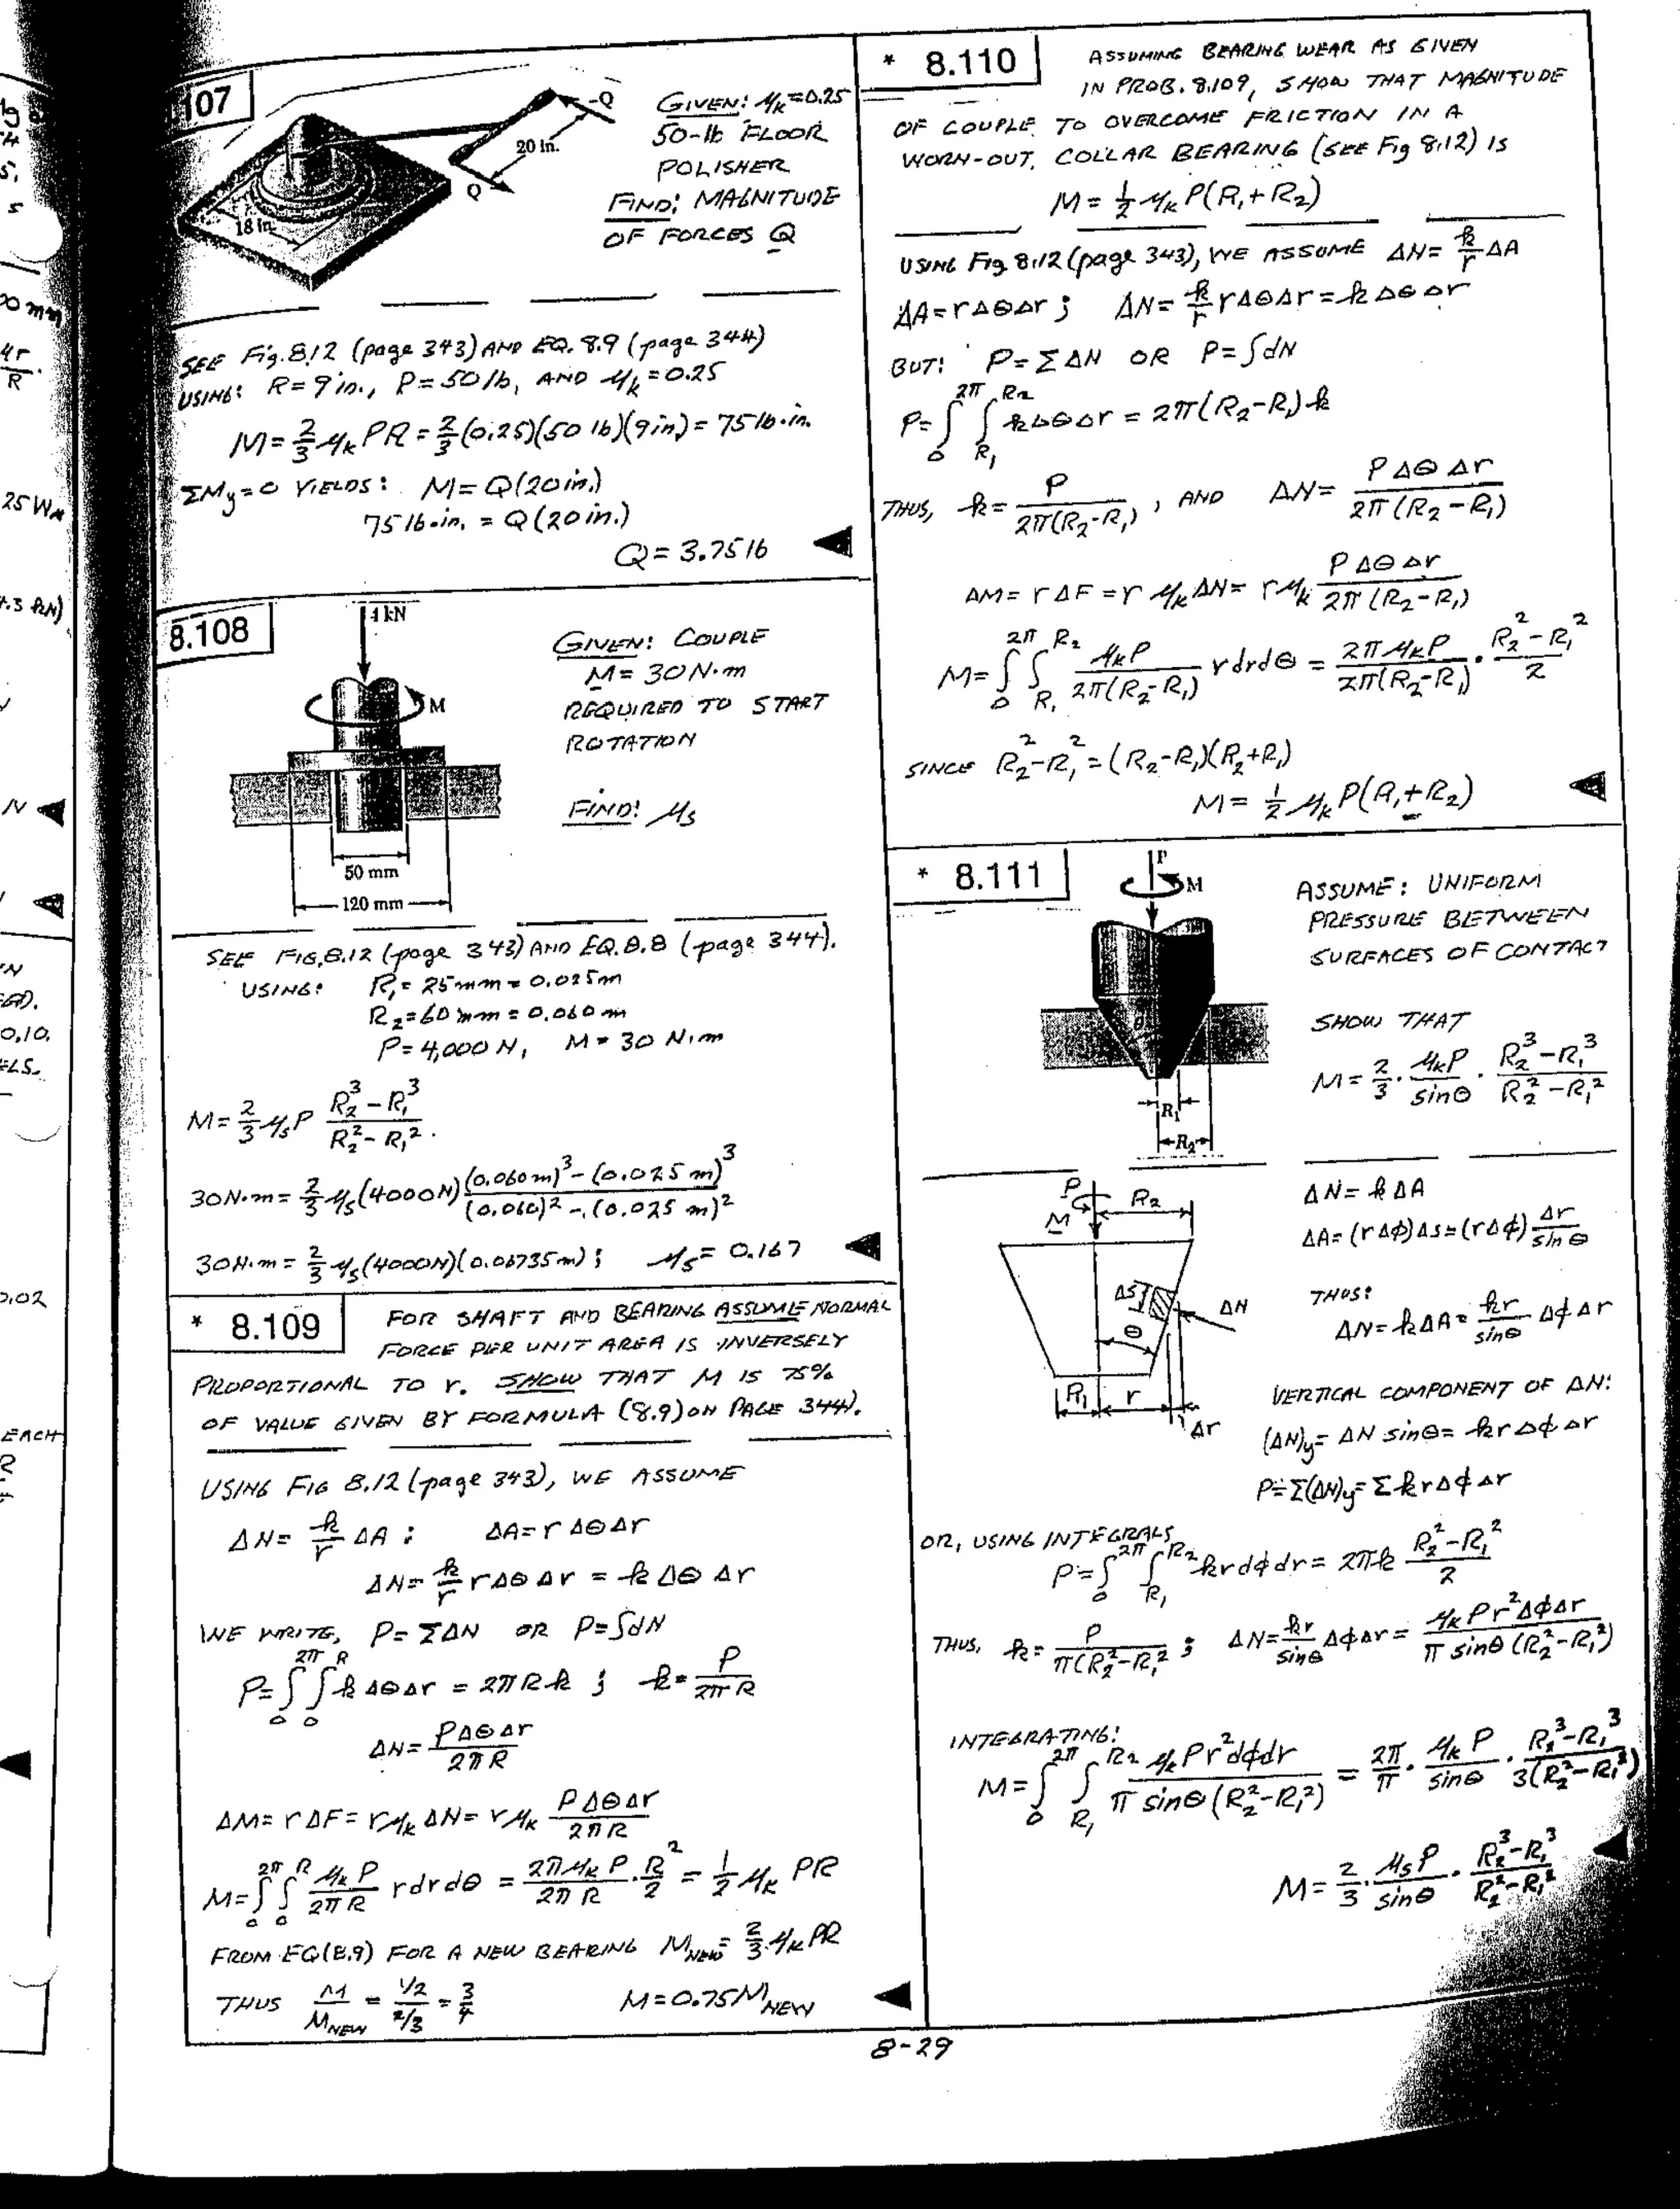 107
-Q
20 in.
Q
18 in.
GIVEN: μk=0.25
50-lb FLOOR
POLISHER
FIND: MAGNITUDE
OF FORCES Q
SEE Fig. 8.12 (page 343) AND EQ. 8.9 (page 344)
USING: R=9in., P=50lb, AND μk=0.25
M=2/3 μk PR = 2/3(0.25)(50 lb)(9in)=75lb·in.
ΣMy=0 YIELDS: M=Q(20in.)
75 lb·in. = Q(20in.)
Q=3.75lb
8.108
4 kN
M
50 mm
120 mm
GIVEN: COUPLE
M=30N·m
REQUIRED TO START
ROTATION
FIND: μs
SEE FIG. 8.12 (page 343) AND EQ. 8.8 (page 344).
USING: R1=25mm=0.025m
R2=60mm=0.060m
P=4,000 N, M=30 N·m
M=2/3 μsP (R2³-R1³)/(R2²-R1²).
30N·m=2/3 μs(4000N) ((0.060m)³-(0.025m)³)/((0.060)²-(0.025 m)²)
30N·m=2/3 μs(4000N)(0.06735m); μs=0.167
* 8.109
FOR SHAFT AND BEARING ASSUME NORMAL
FORCE PER UNIT AREA IS INVERSELY
PROPORTIONAL TO r. SHOW THAT M IS 75%
OF VALUE GIVEN BY FORMULA (8.9) ON PAGE 344).
USING FIG 8.12 (page 343), WE ASSUME
ΔN=k/r ΔA; ΔA=rΔθΔr
ΔN=k/r rΔθΔr=kΔθΔr
WE WRITE, P=ΣΔN OR P=∫dN
P=∫₀^2π ∫₀^R kΔθΔr=2πRk; k=P/2πR
ΔN=PΔθΔr/2πR
ΔM=rΔF=rμkΔN=rμk PΔθΔr/2πR
M=∫₀^2π ∫₀^R μkP/2πR rdrdθ=2πμkP/2πR·R²/2=1/2 μk PR
FROM EQ(8.9) FOR A NEW BEARING MNEW=2/3 μkPR
THUS M/MNEW=(1/2)/(2/3)=3/4 M=0.75MNEW
* 8.110
ASSUMING BEARING WEAR AS GIVEN
IN PROB. 8.109, SHOW THAT MAGNITUDE
OF COUPLE TO OVERCOME FRICTION IN A
WORN-OUT COLLAR BEARING (SEE Fig 8.12) IS
M=1/2 μkP(R1+R2)
USING Fig 8.12 (page 343), WE ASSUME ΔN=k/r ΔA
ΔA=rΔθΔr; ΔN=k/r rΔθΔr=kΔθΔr
BUT: P=ΣΔN OR P=∫dN
P=∫₀^2π ∫R1^R2 kΔθΔr=2π(R2-R1)k
THUS, k=P/2π(R2-R1), AND ΔN=PΔθΔr/2π(R2-R1)
ΔM=rΔF=rμkΔN=rμk PΔθΔr/2π(R2-R1)
M=∫₀^2π ∫R1^R2 μkP/2π(R2-R1) rdrdθ=2πμkP/2π(R2-R1)·(R2²-R1²)/2
SINCE R2²-R1²=(R2-R1)(R2+R1)
M=1/2 μkP(R1+R2)
* 8.111
P
M
θ
R1
R2
ASSUME: UNIFORM
PRESSURE BETWEEN
SURFACES OF CONTACT
SHOW THAT
M=2/3·μkP/sinθ·(R2³-R1³)/(R2²-R1²)
P
M
R2
ΔS
ΔN
θ
R1
r
Δr
ΔN=kΔA
ΔA=(rΔφ)Δs=(rΔφ)Δr/sinθ
THUS:
ΔN=kΔA=kr/sinθ ΔφΔr
VERTICAL COMPONENT OF ΔN:
(ΔN)y=ΔN sinθ=krΔφΔr
P=Σ(ΔN)y=ΣkrΔφΔr
OR, USING INTEGRALS
P=∫₀^2π ∫R1^R2 krdφdr=2πk (R2²-R1²)/2
THUS, k=P/π(R2²-R1²; ΔN=kr/sinθ ΔφΔr=μkPr²ΔφΔr/π sinθ(R2²-R1²)
INTEGRATING:
M=∫₀^2π ∫R1^R2 μkPr²dφdr/π sinθ(R2²-R1²)=2π/π·μkP/sinθ·(R2³-R1³)/3(R2²-R1²)
M=2/3·μsP/sinθ·(R2³-R1³)/(R2²-R1²)
8-29